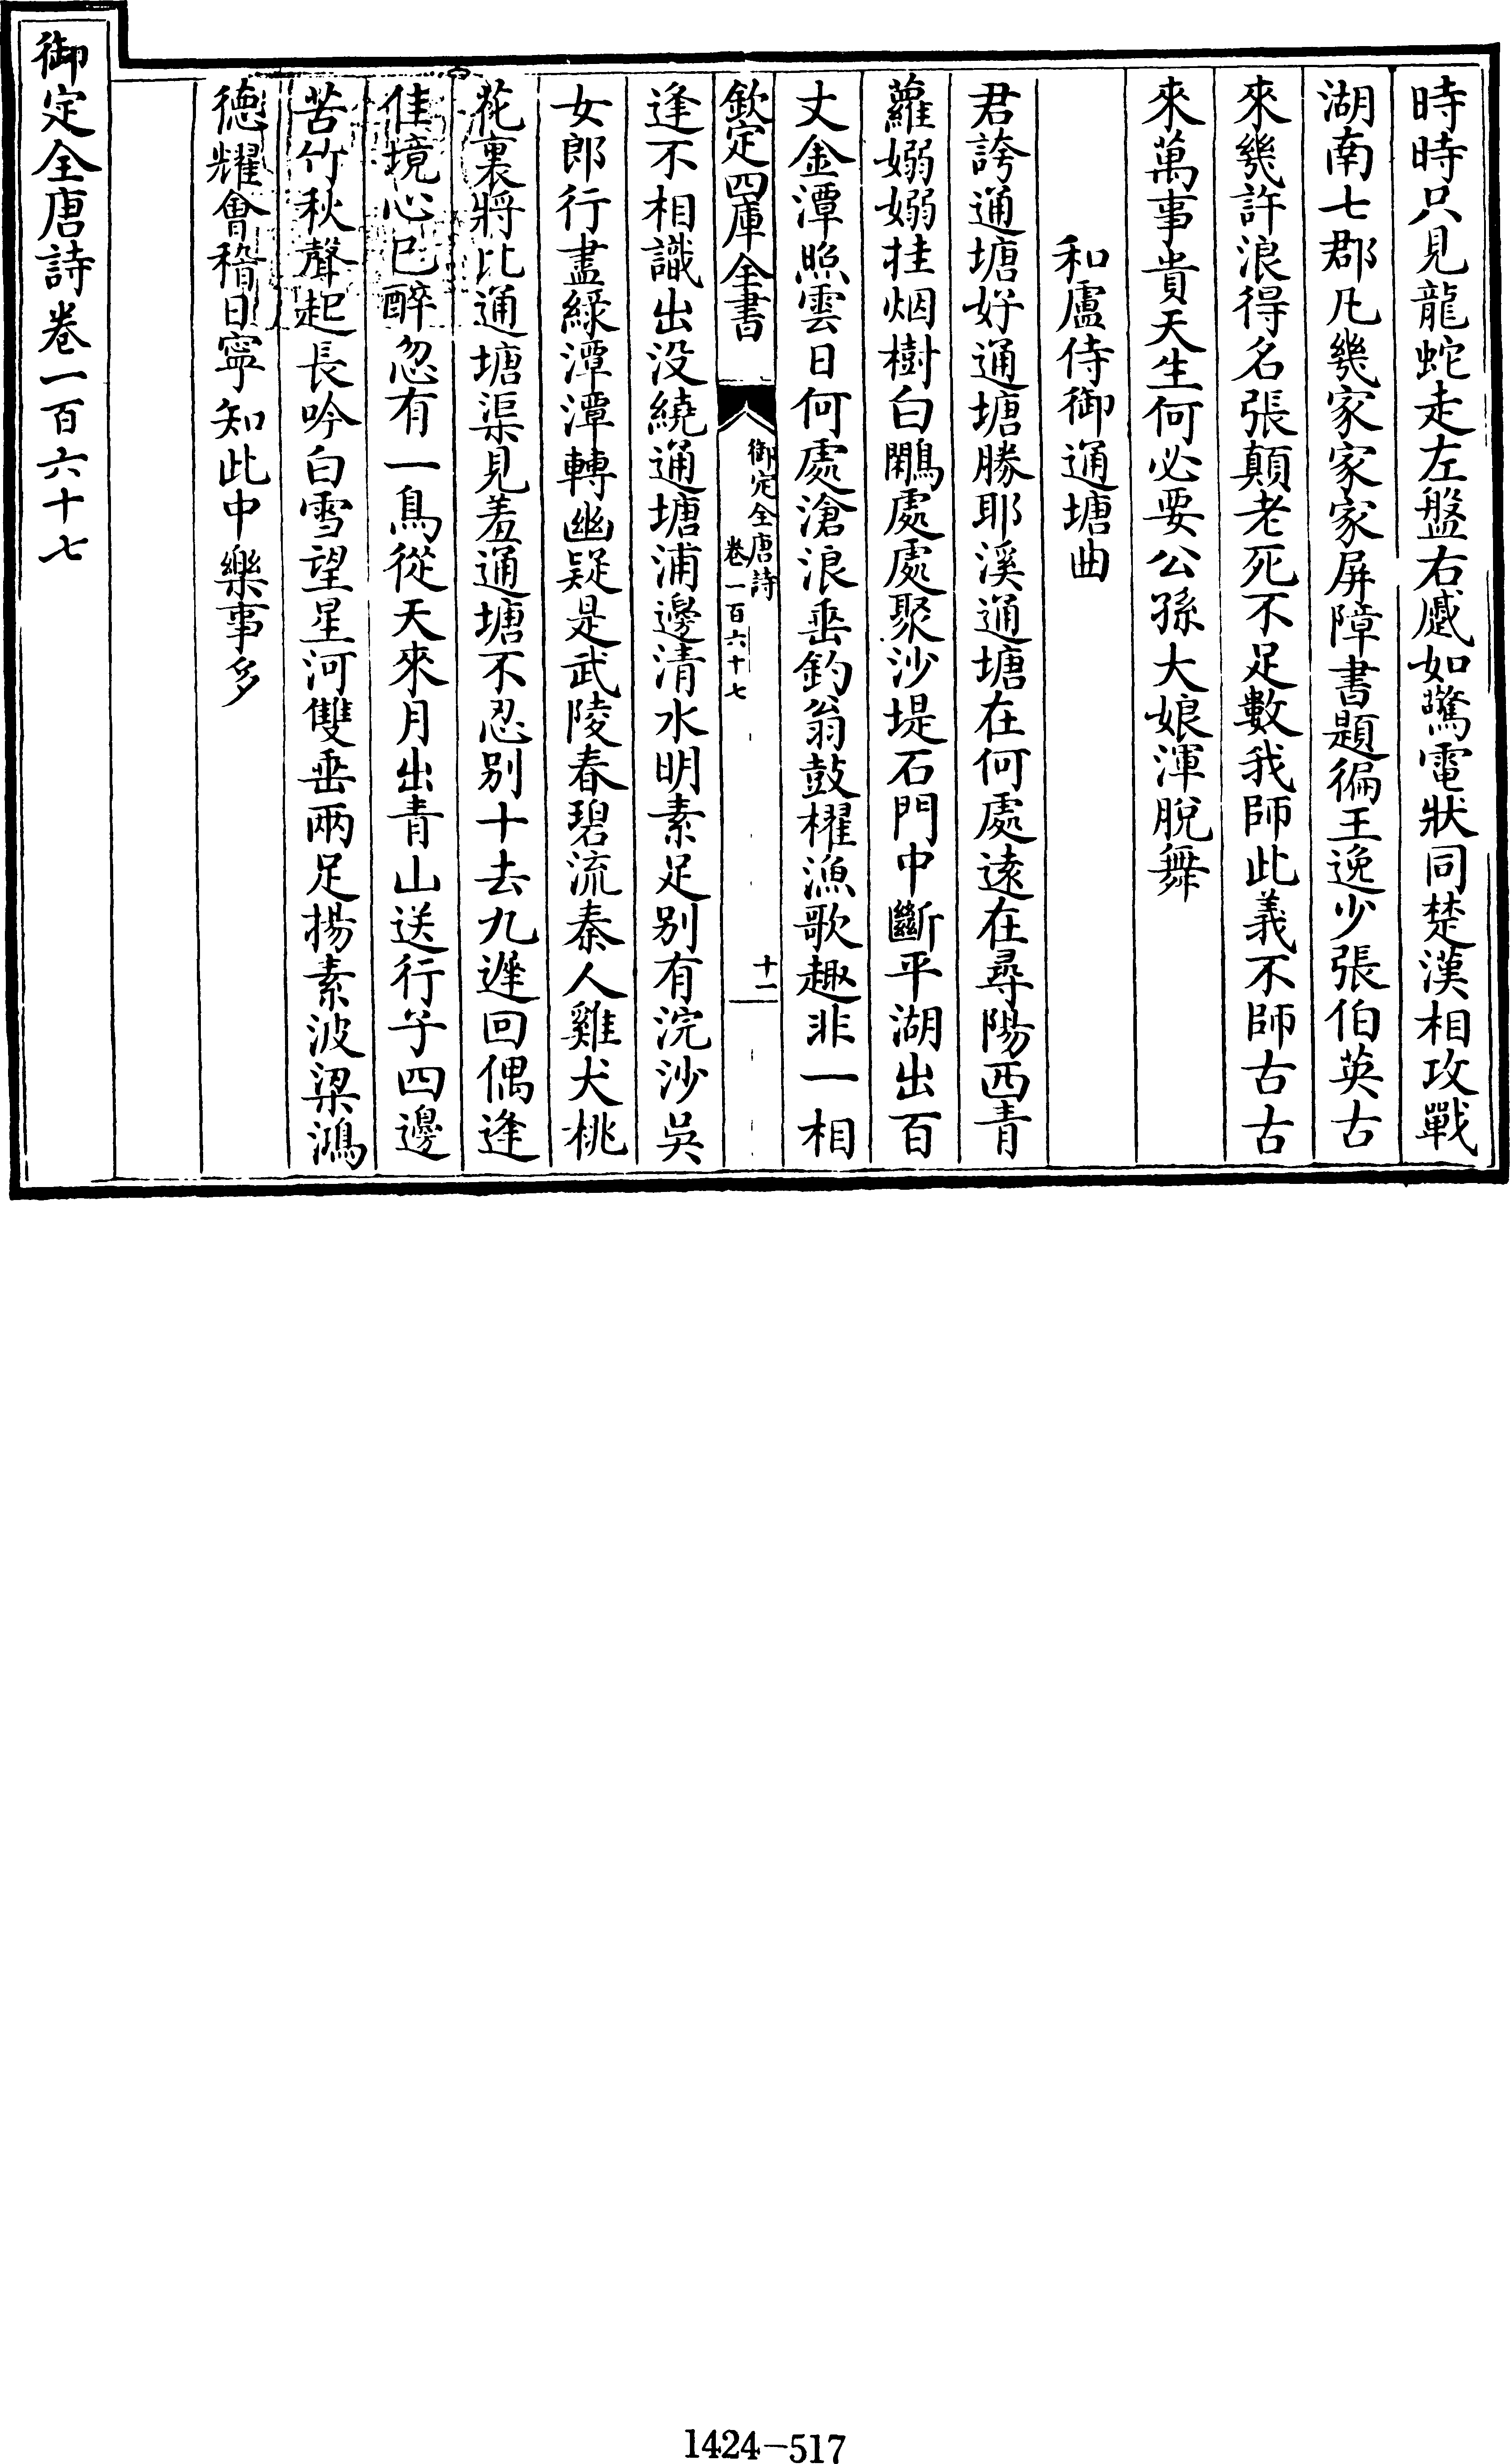 時時只見龍蛇走左盤右蹙如驚電狀同楚漢相攻戰
湖南七郡凡幾家家家屏障書題徧王逸少張伯英古
來幾許浪得名張顛老死不足數我師此義不師古古
來萬事貴天生何必要公孫大娘渾脫舞
和盧侍御通塘曲
君誇通塘好通塘勝耶溪通塘在何處遠在尋陽西青
蘿嫋嫋挂烟樹白鷴處處聚沙堤石門中斷平湖出百
丈金潭照雲日何處滄浪垂釣翁鼓櫂漁歌趣非一相
欽定四庫全書
御定全唐詩
卷一百六十七
十一
逢不相識出没繞通塘浦邊清水明素足别有浣沙吳
女郎行盡綠潭潭轉幽疑是武陵春碧流秦人雞犬桃
花裏將比通塘渠見羞通塘不忍别十去九遲回偶逢
佳境心已醉忽有一鳥從天來月出青山送行子四邊
苦竹秋聲起長吟白雪望星河雙垂兩足揚素波梁鴻
德耀會稽日寧知此中樂事多
御定全唐詩卷一百六十七
1424—517